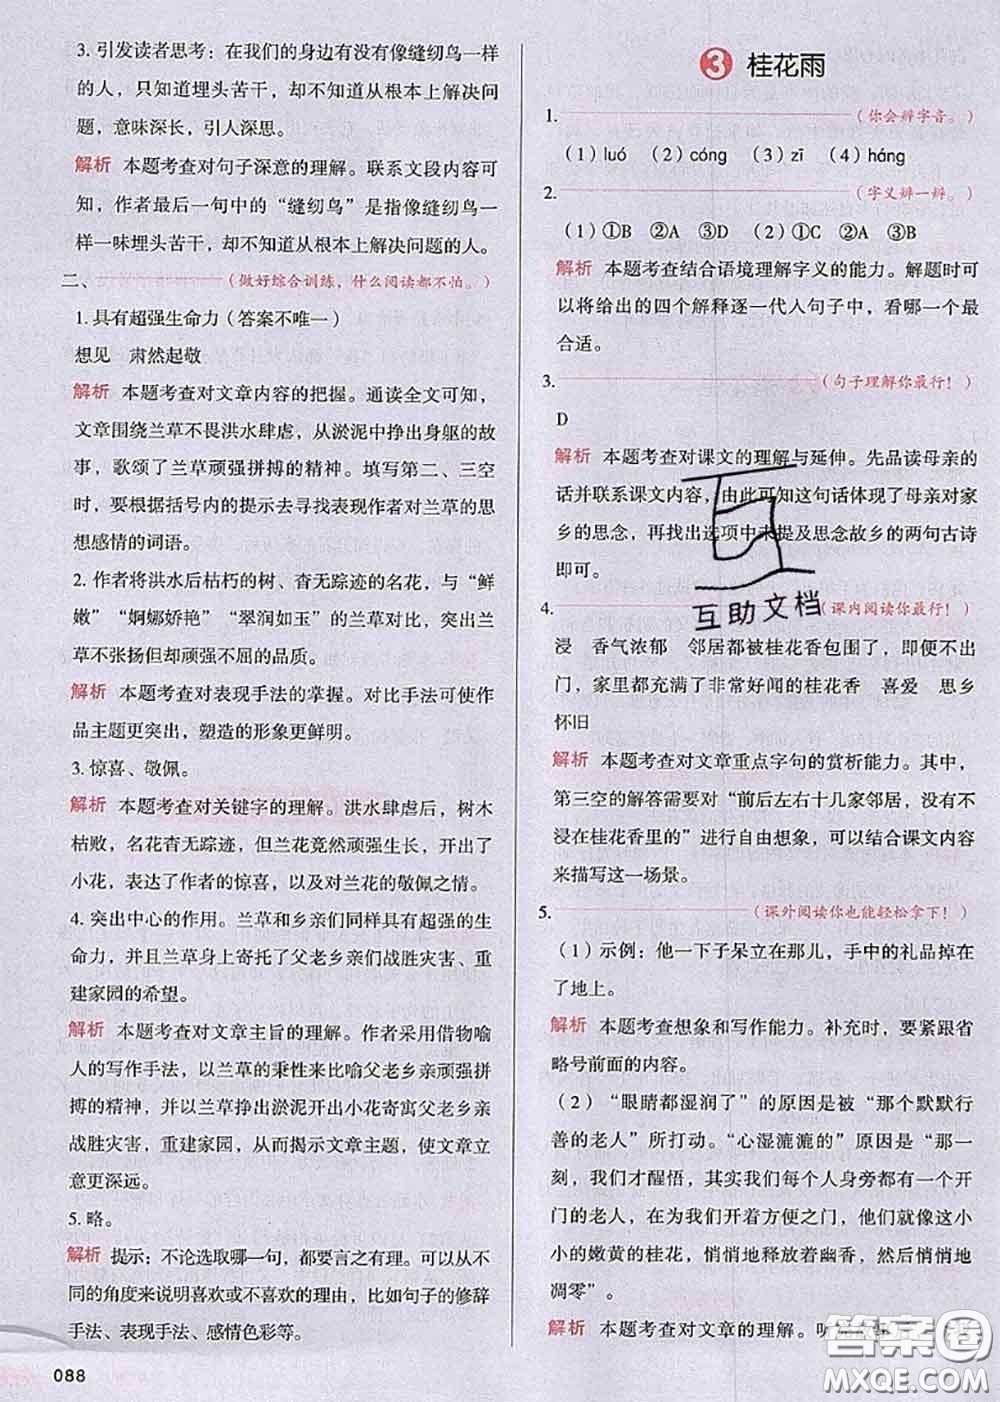 3. 引发读者思考：在我们的身边有没有像缝纫鸟一样
的人，只知道埋头苦干，却不知道从根本上解决问
题，意味深长，引人深思。
解析 本题考查对句子深意的理解。联系文段内容可
知，作者最后一句中的“缝纫鸟”是指像缝纫鸟一
样一味埋头苦干，却不知道从根本上解决问题的人。
二、（做好综合训练，什么阅读都不怕。）
1. 具有超强生命力（答案不唯一）
想见 肃然起敬
解析 本题考查对文章内容的把握。通读全文可知，
文章围绕兰草不畏洪水肆虐，从淤泥中挣出身躯的故
事，歌颂了兰草顽强拼搏的精神。填写第二、三空
时，要根据括号内的提示去寻找表现作者对兰草的思
想感情的词语。
2. 作者将洪水后枯朽的树、杳无踪迹的名花，与“鲜
嫩”“婀娜娇艳”“翠润如玉”的兰草对比，突出兰
草不张扬但却顽强不屈的品质。
解析 本题考查对表现手法的掌握。对比手法可使作
品主题更突出，塑造的形象更鲜明。
3. 惊喜、敬佩。
解析 本题考查对关键字的理解。洪水肆虐后，树木
枯败，名花杳无踪迹，但兰花竟然顽强生长，开出了
小花，表达了作者的惊喜，以及对兰花的敬佩之情。
4. 突出中心的作用。兰草和乡亲们同样具有超强的生
命力，并且兰草身上寄托了父老乡亲们战胜灾害、重
建家园的希望。
解析 本题考查对文章主旨的理解。作者采用借物喻
人的写作手法，以兰草的秉性来比喻父老乡亲顽强拼
搏的精神，并以兰草挣出淤泥开出小花寄寓父老乡亲
战胜灾害，重建家园，从而揭示文章主题，使文章立
意更深远。
5. 略。
解析 提示：不论选取哪一句，都要言之有理。可以从不
同的角度来说明喜欢或不喜欢的理由，比如句子的修辞
手法、表现手法、感情色彩等。
088
3 桂花雨
1.（你会辨字音。）
（1）luó （2）cóng （3）zī （4）háng
2.（字义辨一辨。）
（1）①B ②A ③D （2）①C ②A ③D
解析 本题考查结合语境理解字义的能力。解题时可
以将给出的四个解释逐一代人句子中，看哪一个最
合适。
3.（句子理解你最行！）
D
解析 本题考查对课文的理解与延伸。先品读母亲的
话并联系课文内容，由此可知这句话体现了母亲对家
乡的思念，再找出选项中来提及思念故乡的两句古诗
即可。
互助文档
4.（课内阅读你最行！）
浸 香气浓郁 邻居都被桂花香包围了，即便不出
门，家里都充满了非常好闻的桂花香 喜爱 思乡
怀旧
解析 本题考查对文章重点字句的赏析能力。其中，
第三空的解答需要对“前后左右十几家邻居，没有不
浸在桂花香里的”进行自由想象，可以结合课文内容
来描写这一场景。
5.（课外阅读你也能轻松拿下！）
（1）示例：他一下子呆立在那儿，手中的礼品掉在
了地上。
解析 本题考查想象和写作能力。补充时，要紧跟省
略号前面的内容。
（2）“眼睛都湿润了”的原因是被“那个默默行
善的老人”所打动。“心湿漉漉的”原因是“那一
刻，我们才醒悟，其实我们每个人身旁都有一个开
门的老人，在为我们开着方便之门，他们就像这小
小的嫩黄的桂花，悄悄地释放着幽香，然后悄悄地
凋零”。
解析 本题考查对文章的理解。
答案圈
MXQE.COM